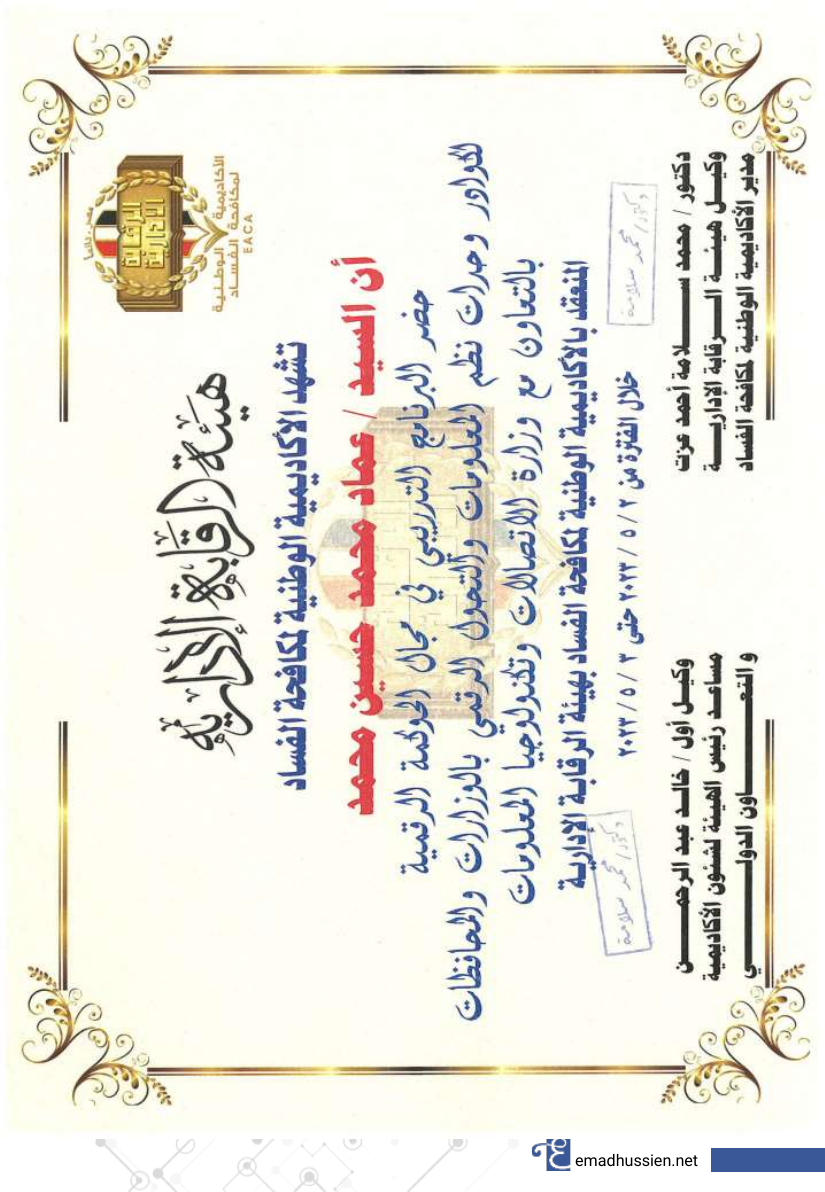 مصر .. دائماً
الرقابة
الإدارية
الأكاديمية الوطنية
لمكافحة الفساد
EACA
هيئة الرقابة الإدارية
تشهد الأكاديمية الوطنية لمكافحة الفساد
أن السيد / عماد محمد حسين محمد
حضر البرنامج التدريبي في مجال الحوكمة الرقمية
لكوادر وحدات نظم المعلومات والتحول الرقمي بالوزارات والمحافظات
بالتعاون مع وزارة الاتصالات وتكنولوجيا المعلومات
المنعقد بالأكاديمية الوطنية لمكافحة الفساد بهيئة الرقابة الإدارية
خلال الفترة من ٢ / ٥ / ٢٠٢٣ حتى ٣ / ٥ / ٢٠٢٣
دكتور / محمد سلامة
دكتور / محمد سلامة
دكتور / محمد ســـلامة أحمد عزت
وكيــل هيئــة الــرقابة الإداريــة
مدير الأكاديمية الوطنية لمكافحة الفساد
وكيــل أول / خالــد عبد الرحمــن
مساعــد رئيس الهيئة لشئون الأكاديمية
و التعـــاون الدولـــي
emadhussien.net